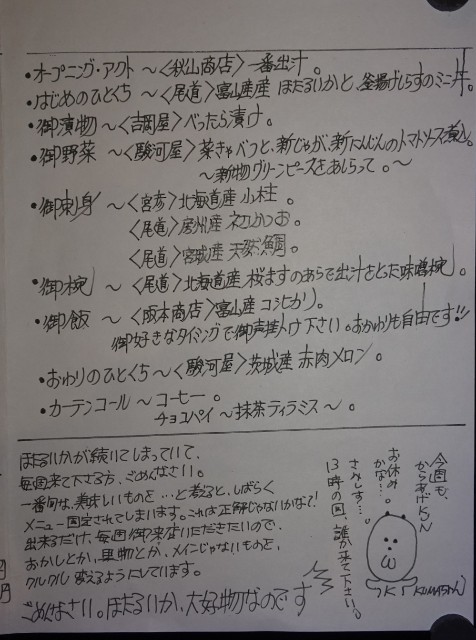 ・オープニング・アクト 〜〈秋山商店〉一番出汁。
・はじめのひとくち〜〈尾道〉富山産 ほたるいかと、釜揚げしらずのミニ丼。
・御漬物〜〈吉岡屋〉べったら漬け。
・御野菜 〜〈駿河屋〉菜きゃべつと、新じゃが、新にんじんのトマトソース煮込。
〜新物グリーンピースをあしらって。〜
・御刺身 〜〈宮彦〉北海道産 小柱。
〈尾道〉房州産 初かつお。
〈尾道〉宮城産 天然鯛。
・御椀 〜〈尾道〉北海道産 桜ますのあらで出汁をとった味噌椀。
・御飯 〜〈阪本商店〉富山産 コシヒカリ。
御好きなタイミングで御声掛け下さい。おかわりも自由です!!
・おわりのひとくち〜〈駿河屋〉茨城産 赤肉メロン。
・カーテンコール 〜コーヒー。
チョコパイ〜抹茶ティラミス〜。
ほたるいかが続いてしまっていて、
毎週来て下さる方、ごめんなさい。
一番旬は、美味しいものを…と考ると、しばらく
メニュー固定されてしまいます。これは正解じゃないかな?!
出来るだけ、毎週御来店いただきたいので、
おかしとか、果物とか、メインじゃないものを、
クルクル変えるようにしています。
ごめんなさい。ほたるいか、大好物なのです
今週も、
からあげKUN
お休み。
かな…。
さみしす…。
13時の回、誰か来て下さい。
KUMASAN
円